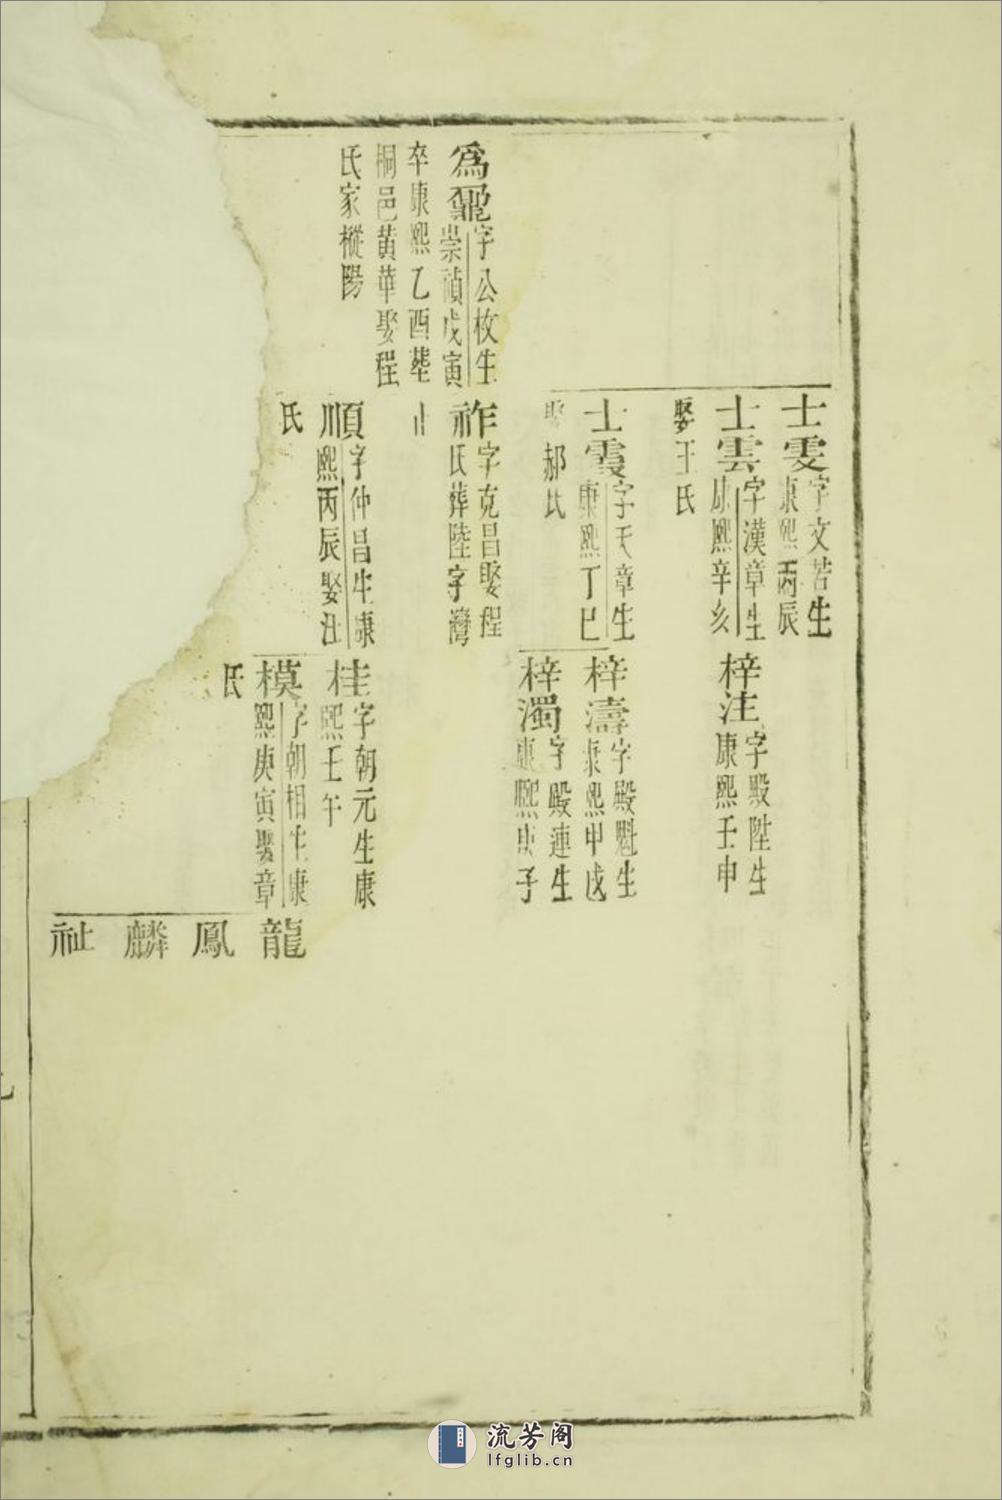 士雯字文若生
康熙丙辰
士雲字漢章生
康熙辛亥
娶王氏
梓注字殿陞生
康熙壬申
士霞字天章生
康熙丁巳
娶郝氏
梓濤字殿魁生
康熙甲戌
梓濁字殿連生
康熙庚子
爲
字公枚生
崇禎戊寅
卒康熙乙酉葬
桐邑黄華娶程
氏家樅陽
祚字克昌娶程
氏葬陸字灣
止
順字仲昌生康
熙丙辰娶汪
氏
桂字朝元生康
熙壬午
模字朝相生康
熙庚寅娶章
氏
龍
鳳
麟
祉
流芳阁
lfglib.cn